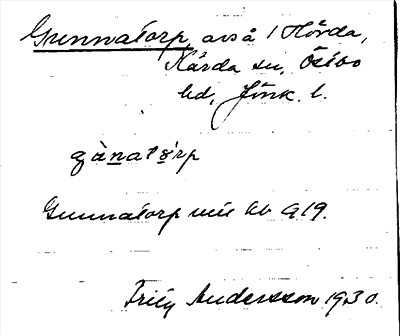 Gunnatorp, avsö i Hörda,
Kärda sn, Östbo
hd, Jönk. l.
gànatórp
Gunnatorp utn kb a19.
Frity Andersson 1930.